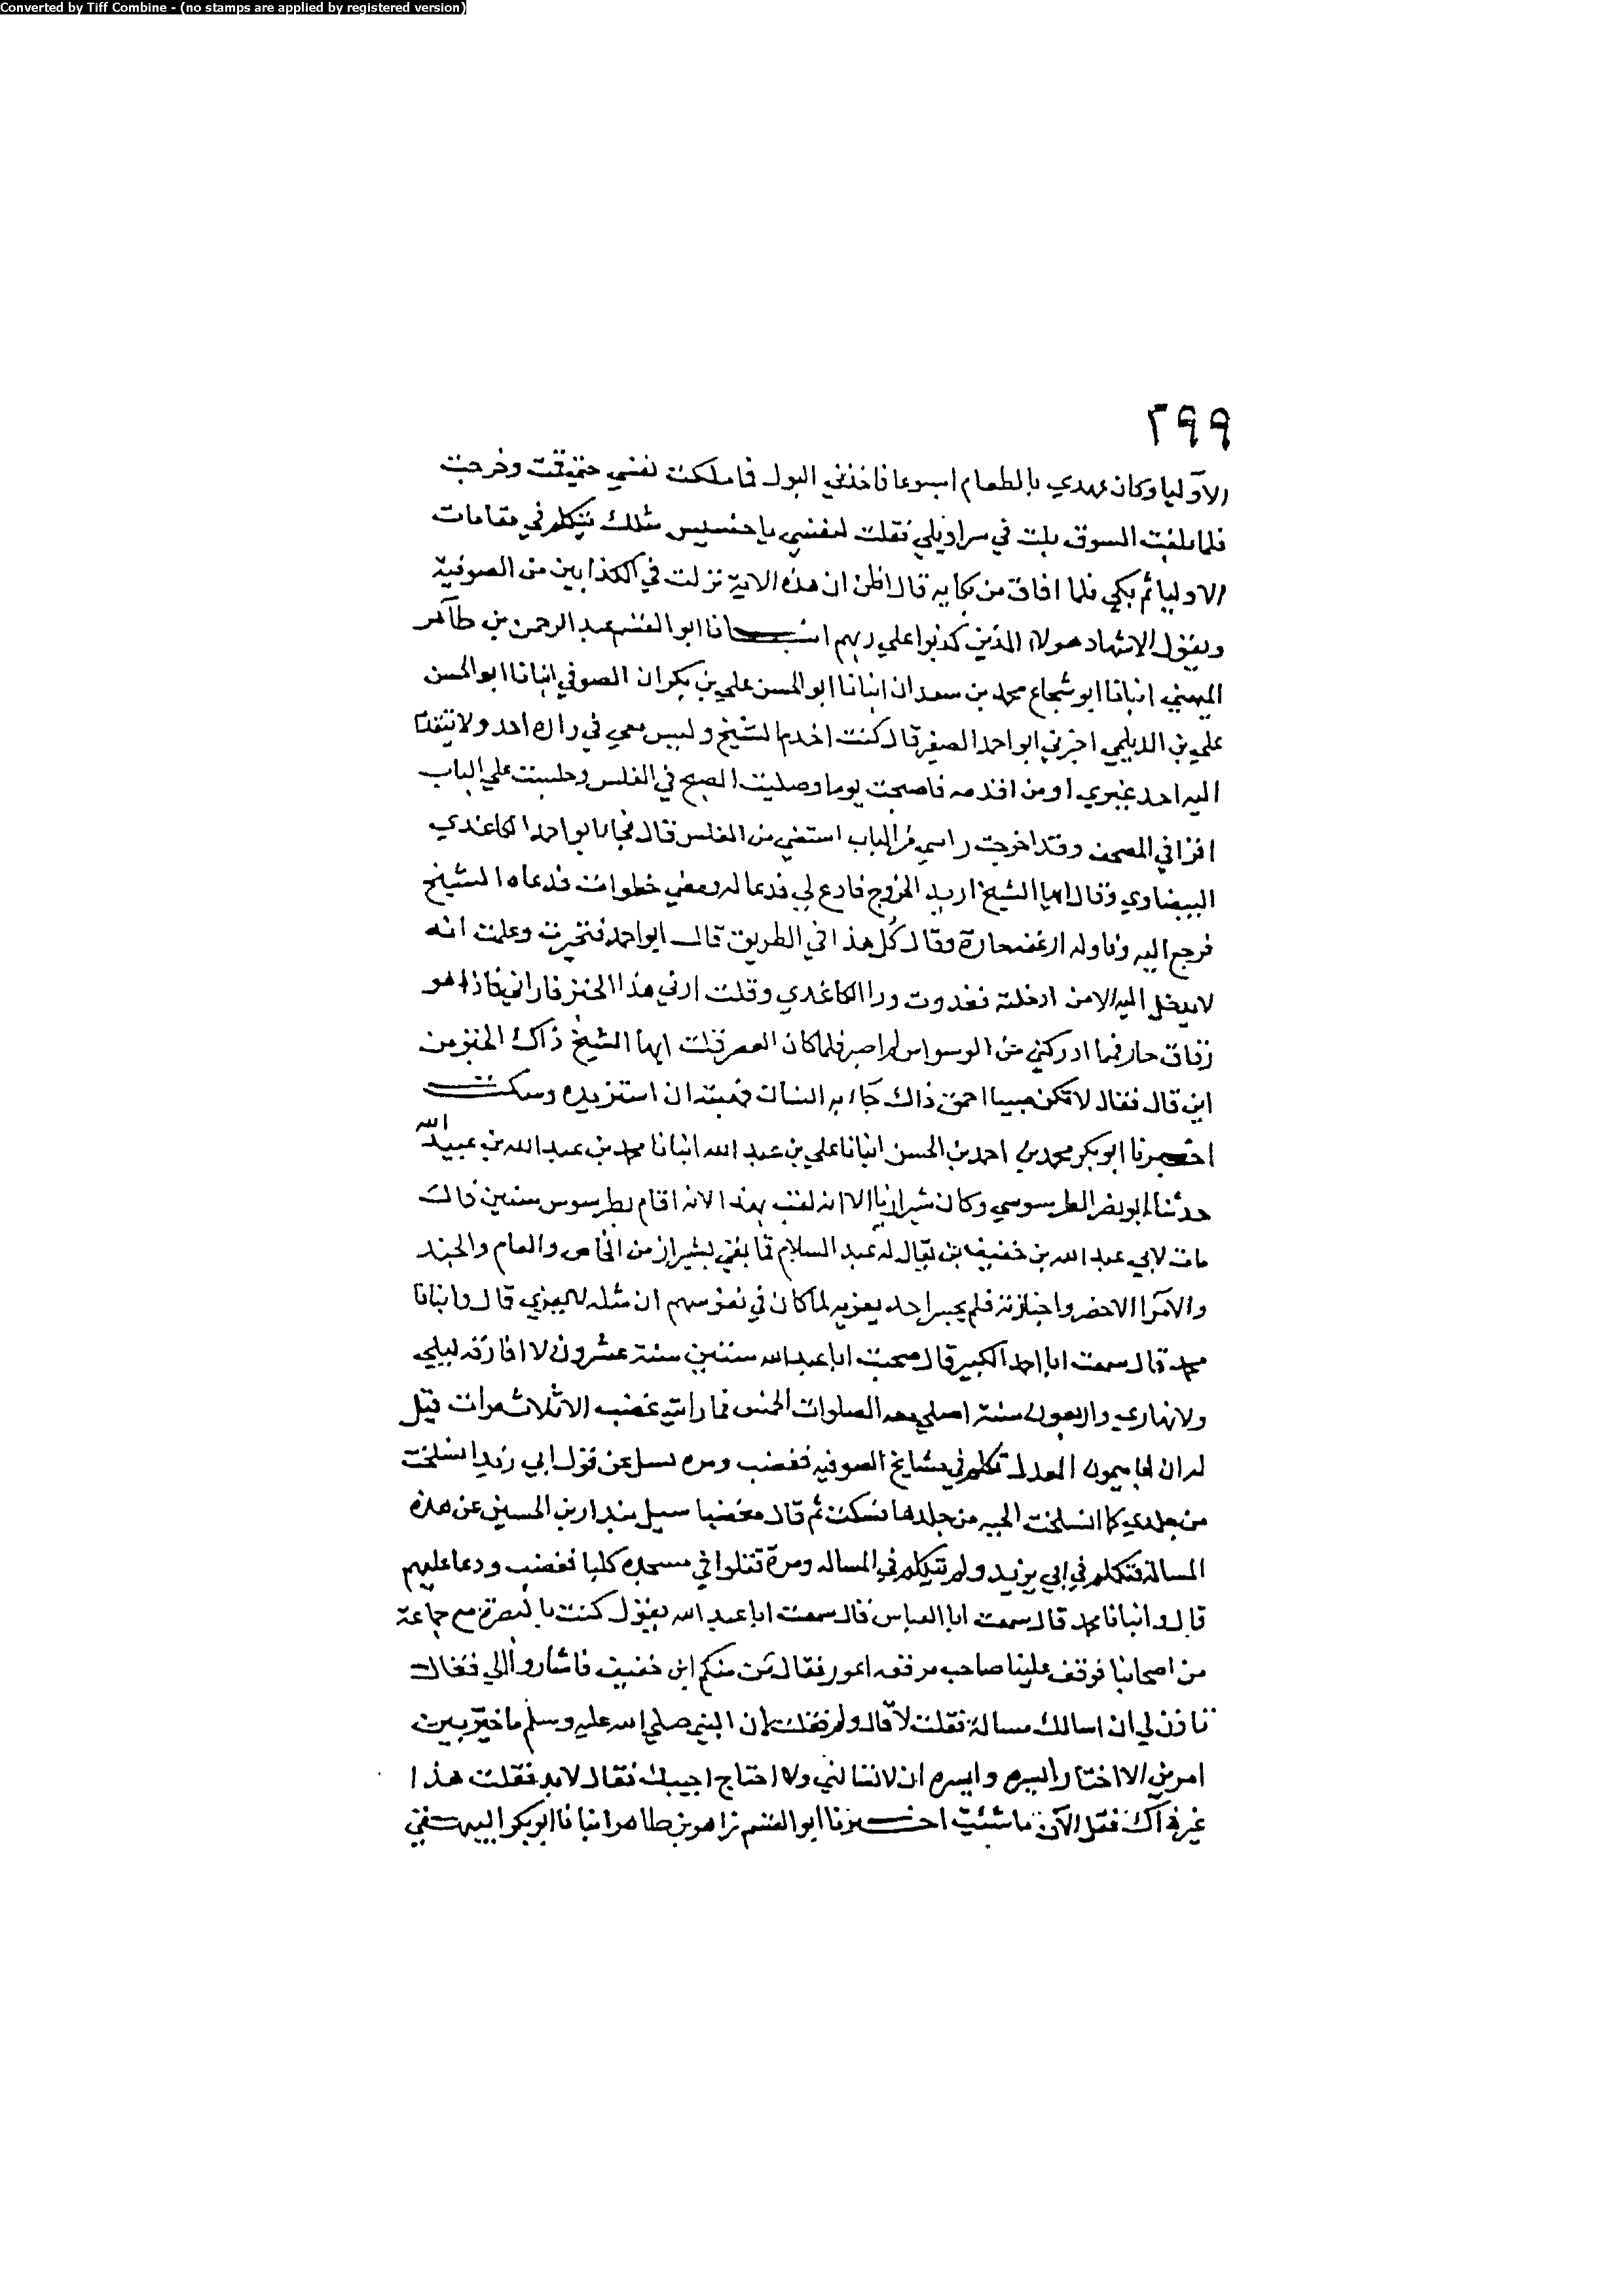 Converted by Tiff Combine - (no stamps are applied by registered version)
٢٩٩
الاوليا وكان عهدي بالطعام اسبوعا فاخذني البول فما ملكت نفسي حتى قمت وخرجت
فلما بلغت السوق بلت في سراويلي فقلت لنفسي يا خسيس مثلك يتكلم في مقامات
الاوليا ثم بكي فلما افاق من بكايه قال اظن ان هذه الاية نزلت في الكذابين من الصوفية
ويقول الاشهاد هولاء الذين كذبوا علي ربهم انبانا ابو القسم عبد الرحمن بن طاهر
الميهني انبانا ابو شجاع محمد بن سعدان انبانا ابو الحسن علي بن بكران الصوفي انبانا ابو الحسن
علي بن الديلمي اخبرني ابو احمد الصغير قال كنت اخدم الشيخ وليس معي في داره احد ولا يتقدم
اليه احد غيري او من اقدمه فاصبحت يوما وصليت الصبح في الغلس وجلست علي الباب
اقرا في المصحف وقد اخرجت راسي من الباب استضي من الغلس قال فجا ابو احمد الكاغدي
البيضاوي وقال ايها الشيخ اريد الخروج فادع لي فدعا له ومضي خطوات فدعاه الشيخ
فرجع اليه وناوله ارغفه حارة وقال كل هذا في الطريق قال ابو احمد فتحيرت وعلمت انه
لا يدخل اليه الا من ادخلته فغدوت ورا الكاغدي وقلت ارني هذا الخبز فاراني فاذا هو
رقاق حار فما ادركني من الوسواس لم اصبر فلما كان العصر قلت ايها الشيخ ذاك الخبز من
اين قال فقال لا تكن صبيا احمق ذاك جاء به انسان فهبته ان استزيده وسكت
اخبرنا ابو بكر محمد بن احمد بن الحسن انبانا علي بن عبد الله انبانا محمد بن عبد الله بن عبيد الله
حدثنا ابو نصر الطرسوسي وكان شيرازيا الا انه لقب بهذا لانه اقام بطرسوس سنين قال
مات لابي عبد الله بن خفيف ابن يقال له عبد السلام فما بقي بشيراز من الخاص والعام والجند
والامرا الا حضروا جنازته فلم يجسر احد يعزيه لما كان في نفوسهم ان مثله لا يعزي قال وانبانا
محمد قال سمعت ابا احمد الكبير قال صحبت ابا عبد الله ستين سنة عشرون لا افارقه ليلي
ولا نهاري واربعون سنة اصلي معه الصلوات الخمس فما رايته غضب الا ثلاث مرات قيل
له ان ابا ميمون العدل تكلم في مشايخ الصوفية فغضب ومره سيل عن قول ابي يزيد انسلخت
من جلدي كما انسلخت الحيه من جلدها فسكت ثم قال مغضبا سيل بندار بن الحسين عن هذه
المسالة فتكلم في ابي يزيد ولم يتكلم في المساله ومرة تفلوا في مسجده كلبا فغضب ودعا عليهم
قال وانبانا محمد قال سمعت ابا العباس قال سمعت ابا عبد الله يقول كنت بالبصرة مع جماعة
من اصحابنا فوقف علينا صاحب مرقعه اعور فقال من منكم ابن خفيف فاشاروا الي فقال
تاذن لي ان اسالك مسالة فقلت لا قال ولم فقلت لان النبي صلي الله عليه وسلم ما خير بين
امرين الا اختار ايسرهما وايسره ان لا تسالني ولا احتاج اجيبك فقال لا بد فقلت هذا
غير ذاك فقل الآن ما شئت اخبرنا ابو القسم زاهر بن طاهر انبانا ابو بكر البيهقي